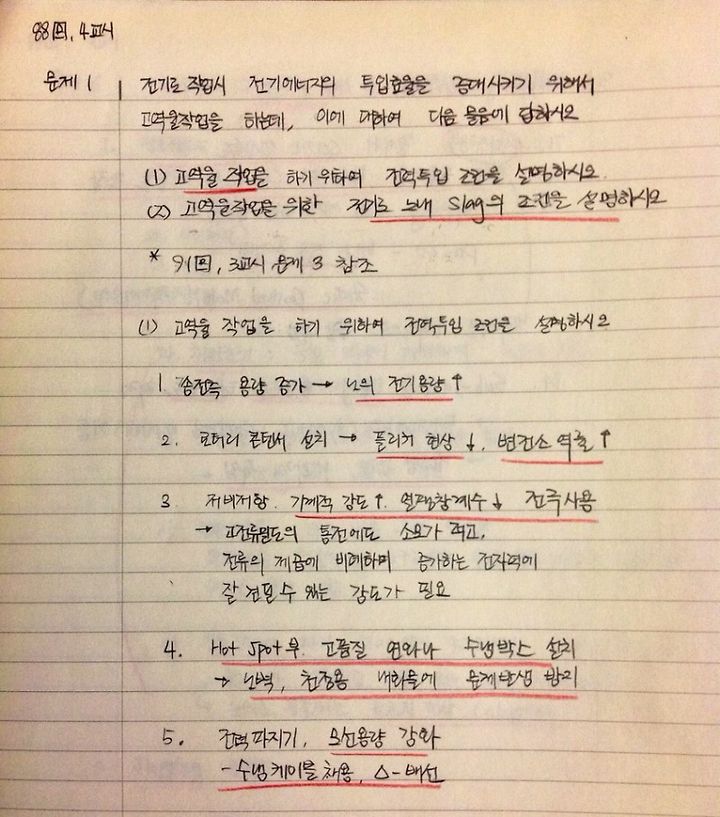 88回, 4교시
문제 1 전기로 작업시 전기에너지의 투입효율을 증대시키기 위해서
고역율작업을 하는데, 이에 대하여 다음 물음에 답하시오
(1) 고역율 작업을 하기 위하여 전력투입 조건을 설명하시오.
(2) 고역율작업을 위한 전기로 노내 Slag의 조건을 설명하시오
* 91回, 3교시 문제 3 참조
(1) 고역율 작업을 하기 위하여 전력투입 조건을 설명하시오
1. 송전측 용량 증가 → 노의 전기용량↑
2. 로터리 콘덴서 설치 → 플리커 현상↓, 변전소 역률↑
3. 저비저항, 기계적 강도↑, 열팽창계수↓ 전극사용
→ 고전류밀도의 통전에도 소모가 적고,
전류의 제곱에 비례하며 증가하는 전자력에
잘 견딜 수 있는 강도가 필요
4. Hot Spot부, 고품질 연와나 수냉박스 설치
→ 노벽, 천정용 내화물에 문제발생 방지
5. 전력파지기, 모선용량 강화
- 수냉케이블 채용, △-배선